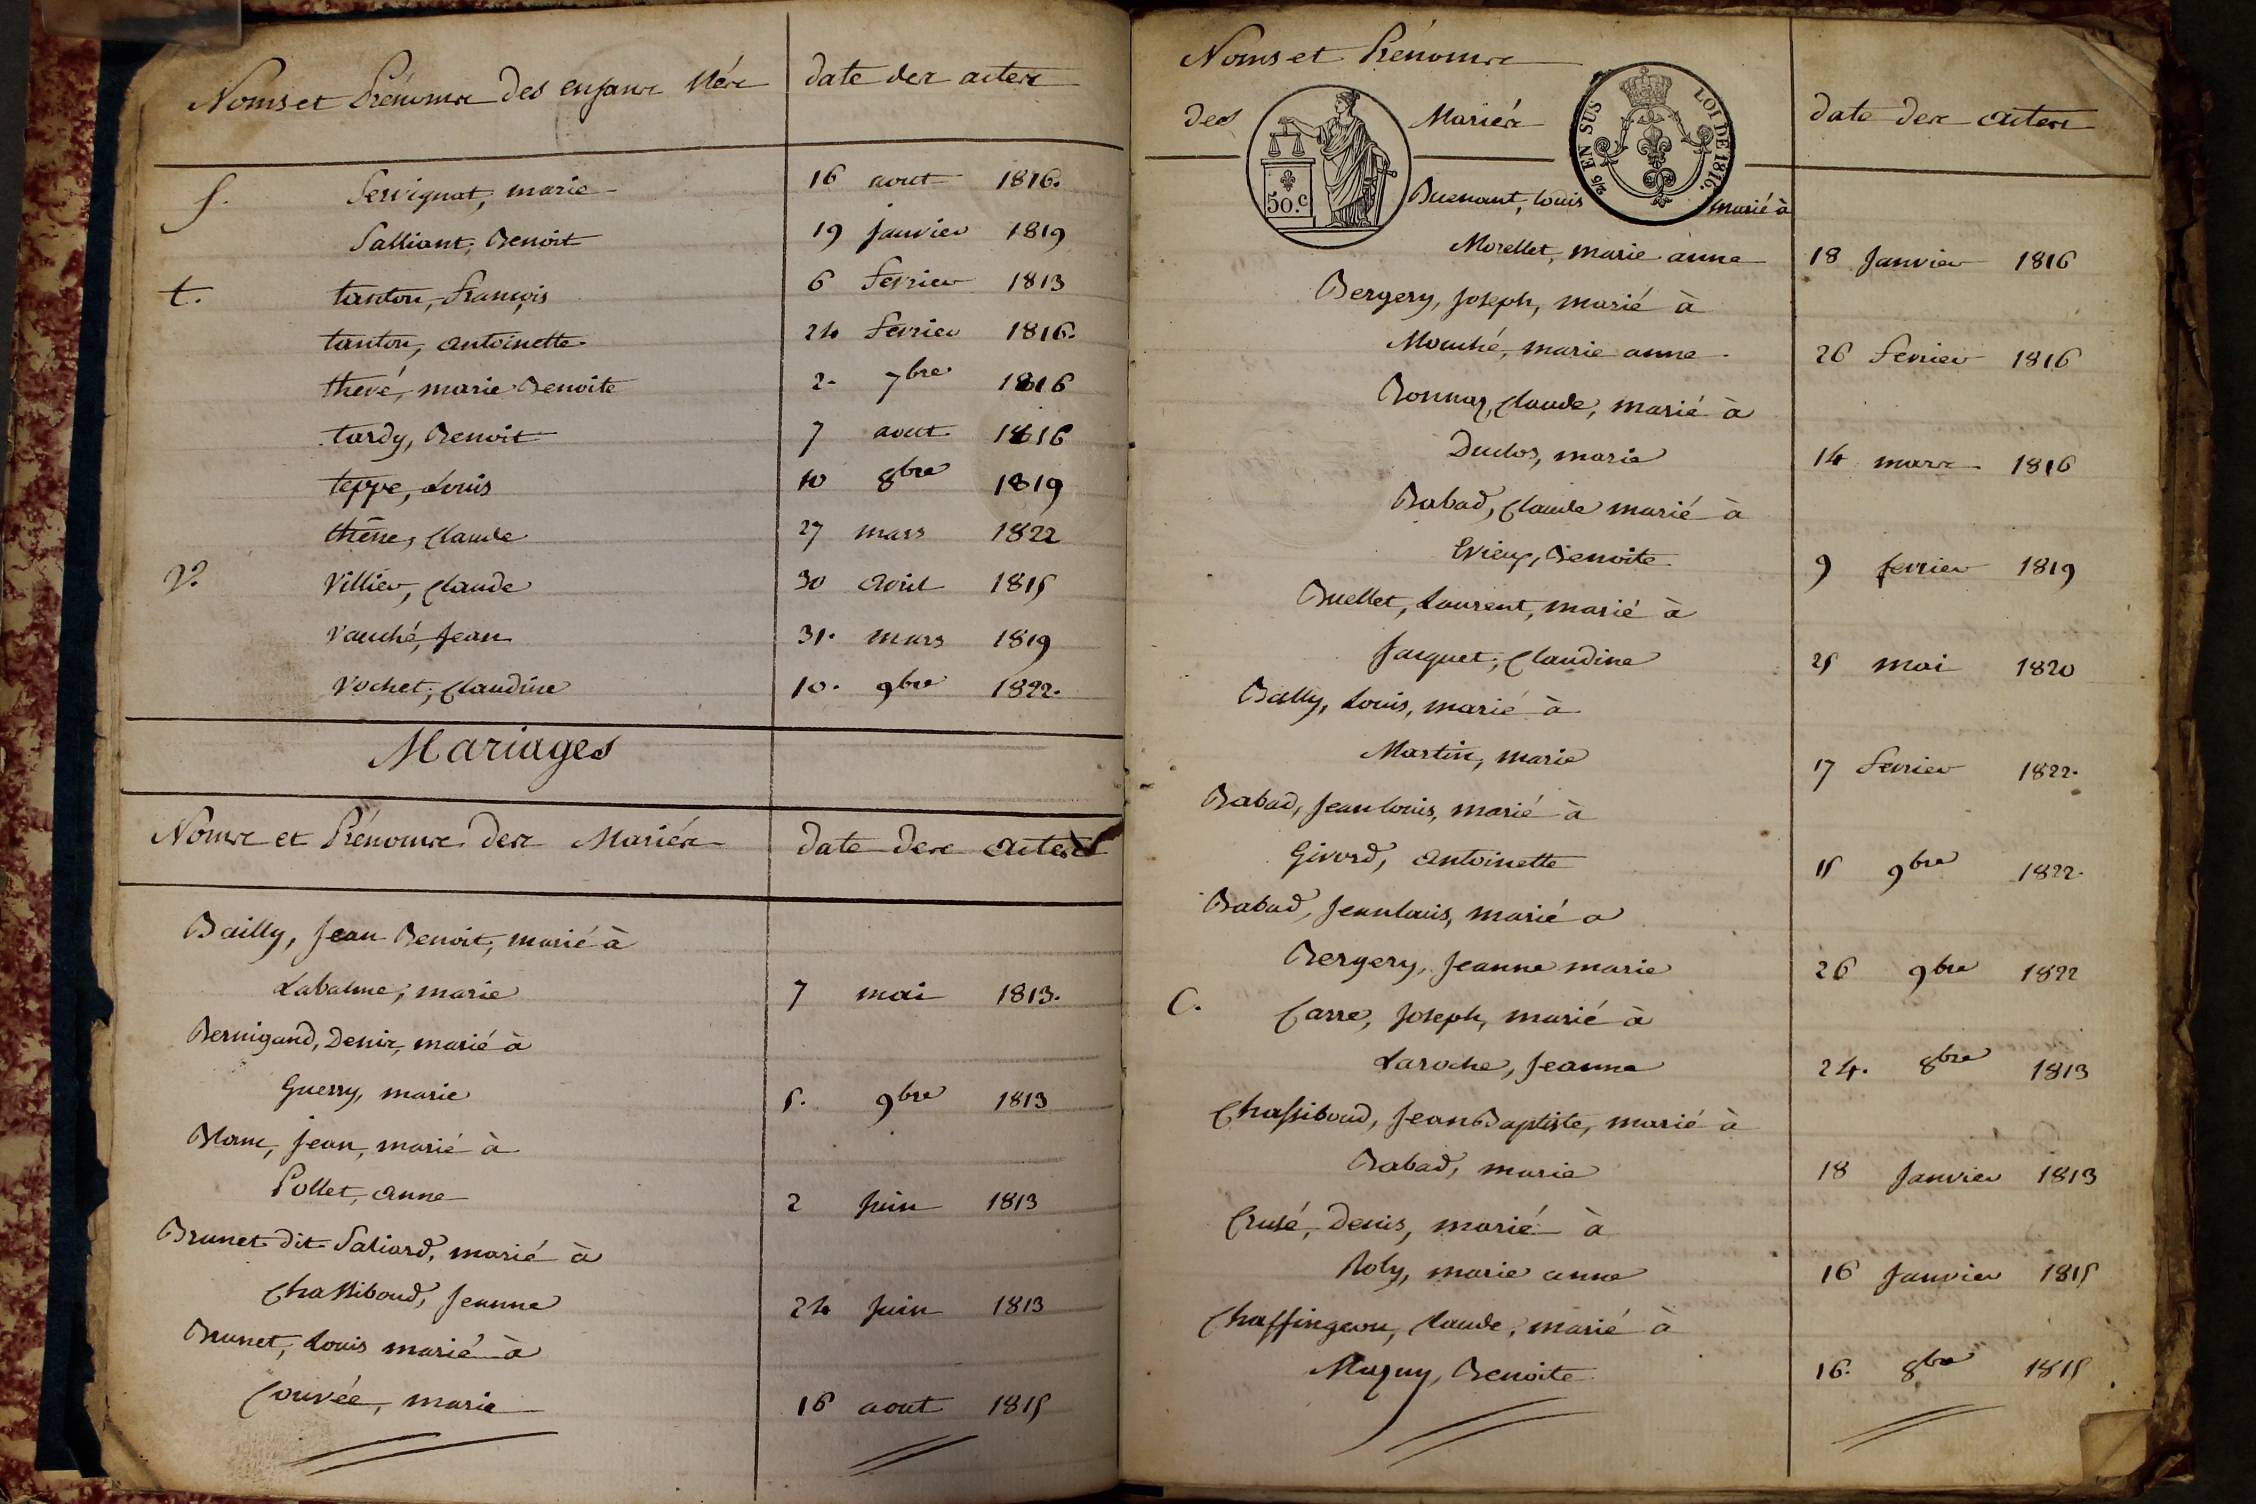 Noms et Prénoms des enfans Nés date des actes
S. Servignat, marie 16 aout 1816.
Salliant, Benoit 19 janvier 1819
t. tanton, François 6 fevrier 1813
tanton, antoinette 24 fevrier 1816.
thevé, marie Benoite 2. 7bre 1816
tardy, Benoit 7 aout 1816
teppe, Louis 10 8bre 1819
thène, Claude 27 mars 1822
V. Villier, Claude 30 avril 1815
Vauché, Jean 31. mars 1819
Vochet, Claudine 10. 9bre 1822.
Mariages
Noms et Prénoms des Mariés date des actes
Bailly, Jean Benoit, marié à
Labalme, marie 7 mai 1813.
Bernigaud, Denis, marié à
Guerry, marie 5. 9bre 1813
Blanc, Jean, marié à
Pollet, anne 2 juin 1813
Brunet dit Saliard, marié à
Chassiboud, Jeanne 24 juin 1813
Brunet, Louis marié à
Couvée, marie 16 aout 1815
Noms et Prénoms
des Mariés date des actes
50.c
5/6 EN SUS LOI DE 1816.
Buenant, Louis marié à
Morellet, marie anne 18 Janvier 1816
Bergery, Joseph, marié à
Mouché, marie anne. 26 fevrier 1816
Bonnaz, Claude, marié à
Duclos, marie 14 mars 1816
Babad, Claude marié à
Evieux, Benoite 9 fevrier 1819
Buellet, Laurent, marié à
Jacquet, Claudine 25 mai 1820
Bally, Louis, marié à
Martin, marie 17 fevrier 1822.
Babad, Jean louis, marié à
Givord, antoinette 15 9bre 1822.
Babad, Jean louis, marié a
Bergery, Jeanne marie 26 9bre 1822
C. Carre, Joseph, marié à
Laroche, Jeanne 24. 8bre 1813
Chassiboud, Jean Baptiste, marié à
Babad, marie 18 Janvier 1813
Crusé, Denis, marié à
Roly, marie anne 16 Janvier 1815
Chaffingeon, Claude, marié à
Muguy, Benoite 16. 8bre 1815